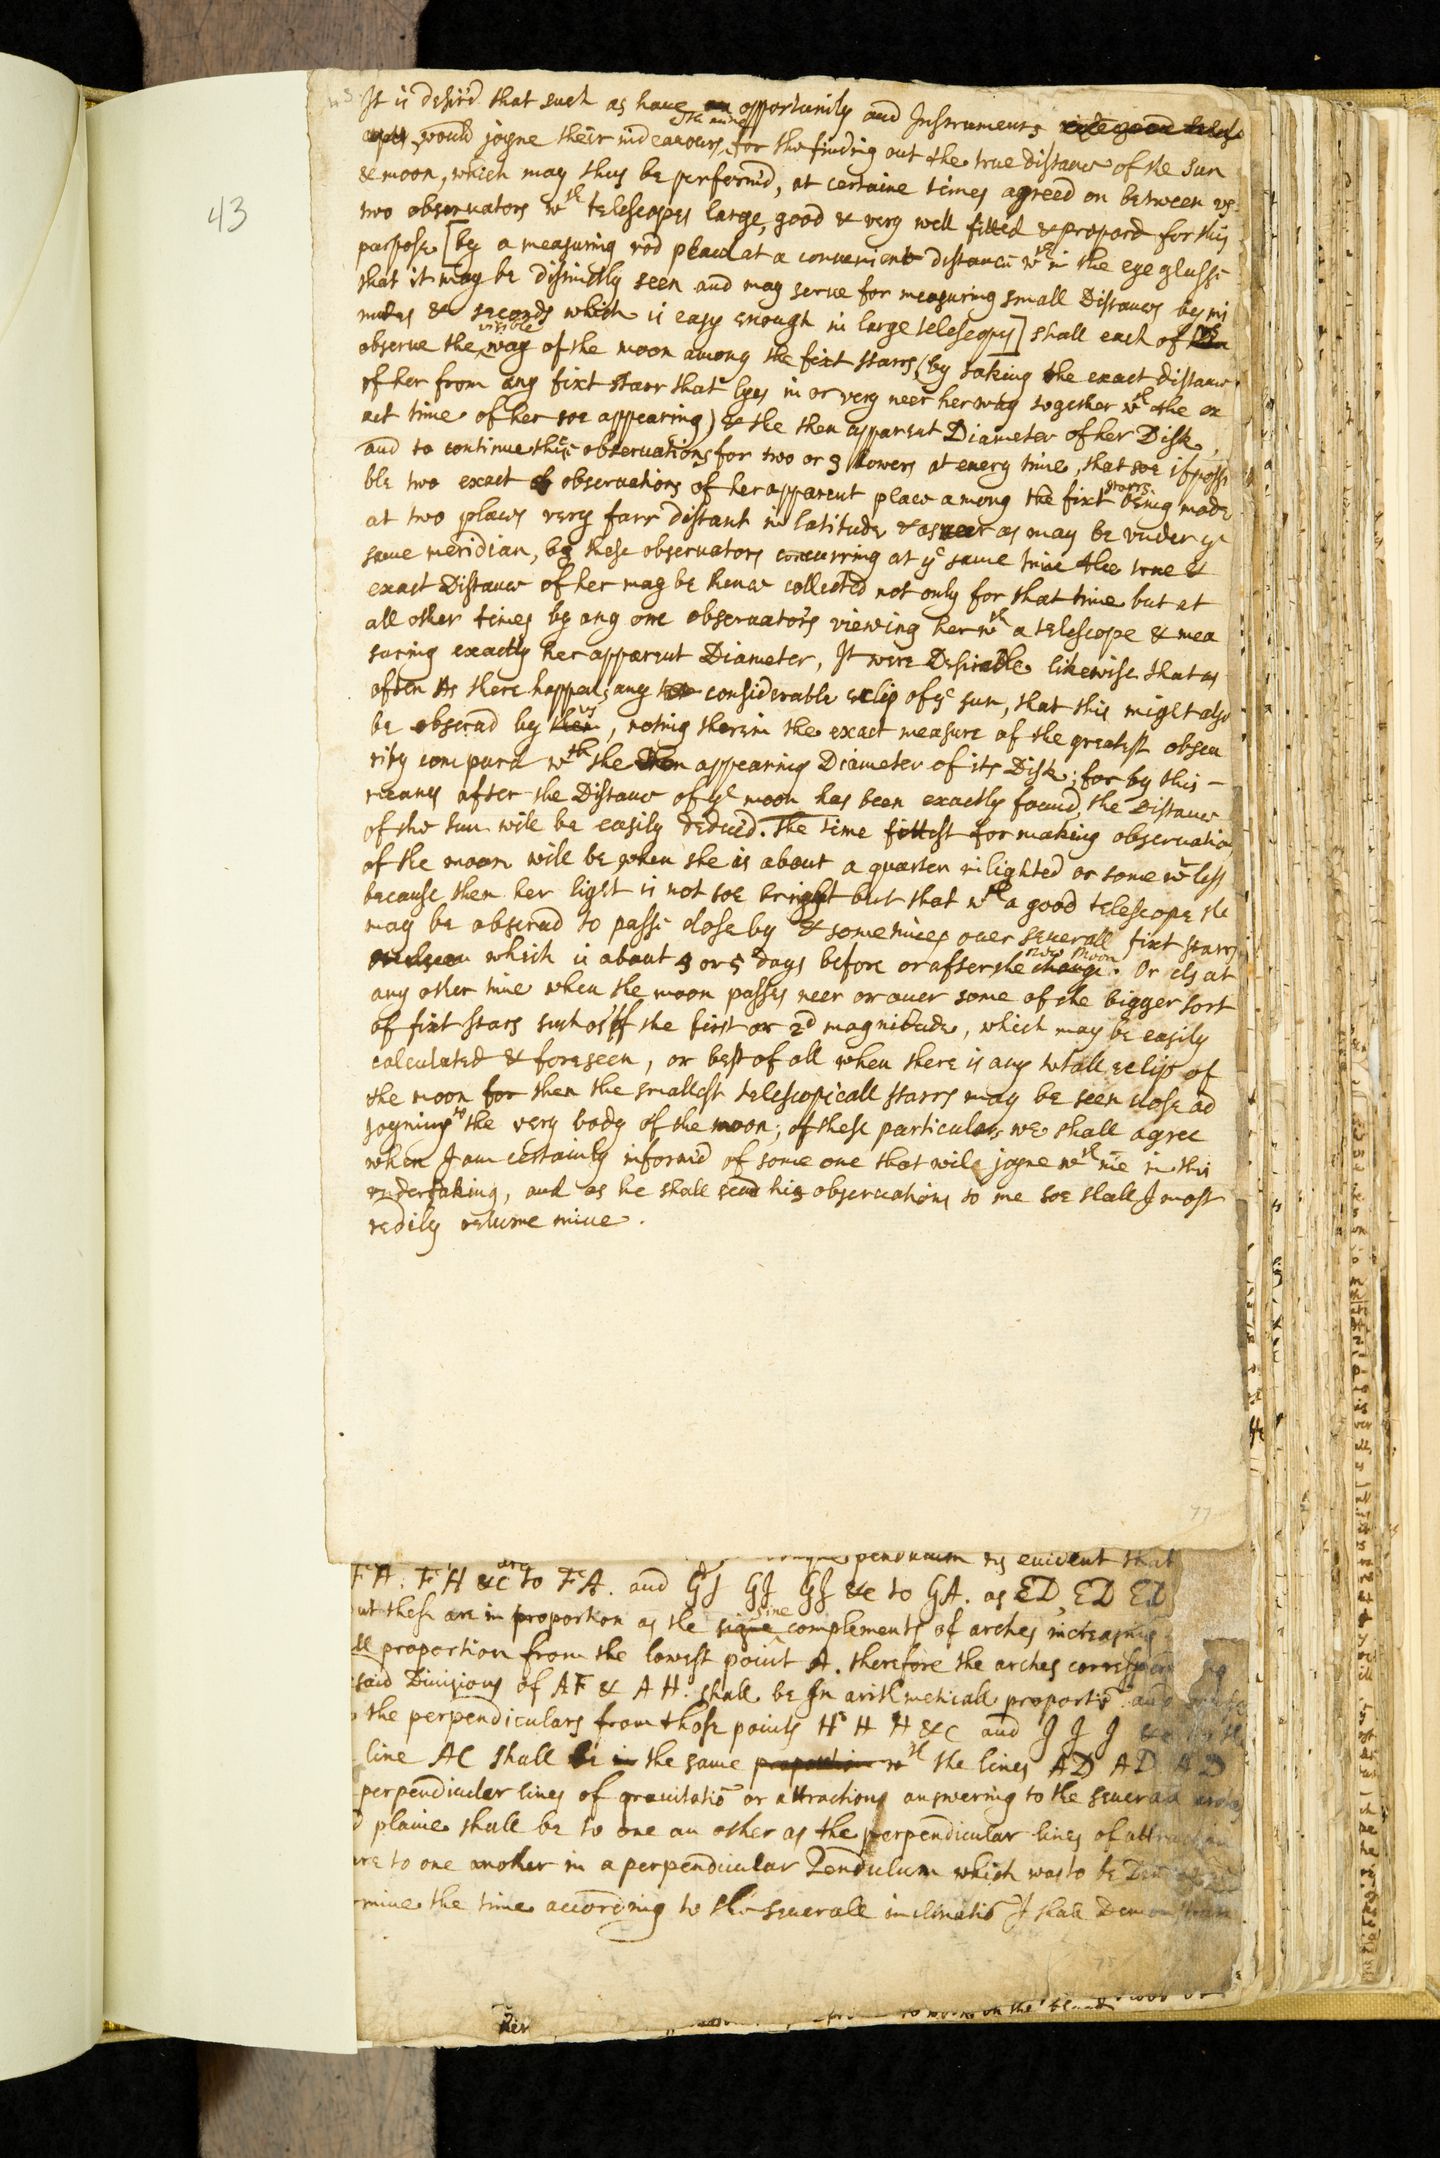 43
It is desird that such as have an opportunity and Instruments
would joyne their indeavours wth mine for the finding out the true distance of the sun
& moon, which may thus be performd, at certaine times agreed on between us
two observators wth telescopes large, good & very well fitted & prepard for this
purpose [by a measuring rod placd at a convenient distance wthin the eye glasse
that it may be distinctly seen and may serve for measuring small Distances by mi
nutes & seconds which is easy enough in large telescopes] shall each of us
observe the visible way of the moon among the fixt starrs, (by taking the exact distance
of her from any fixt starr that lyes in or very neer her way together wth the ex
act time of her soe appearing) & the then apparent Diameter of her Disk,
and to continue these observations for two or 3 howers at every time, that soe if possi
ble two exact observations of her apparent place among the fixt starrs being made
at two places very farr distant in latitude & as neer as may be under ye
same meridian, by these observators concurring at ye same time the true &
exact Distance of her may be hence collected not only for that time but at
all other times by any one observators viewing her wth a telescope & mea
suring exactly her apparent Diameter, It were Desireable likewise that as
often As there happens any considerable eclips of ye sun, that this might also
be observd by them us, noting therein the exact measure of the greatest obscu
rity compard wth the then appearing Diameter of its Disk; for by this -
meanes after the Distance of ye moon has been exactly found, the Distance
of the sun will be easily deducd. The time fittest for making observations
of the moon will be when she is about a quarter inlighted or somewt less
because then her light is not soe bright but that wth a good telescope she
may be observd to passe close by & sometimes over severall fixt starrs
which is about 4 or 5 days before or after the change new moon. Or els at
any other time when the moon passes neer or over some of the bigger sort
of fixt stars such as of the first or 2d magnitude, which may be easily
calculated & foreseen, or best of all when there is any totall eclips of
the moon for then the smallest telescopicall starrs may be seen close ad
joyning to the very body of the moon; of these particulars we shall agree
when I am certainly informd of some one that will joyne wth me in this
undertaking, and as he shall send his observations to me soe shall I most
redily returne mine.
77
pendulum tis evident that
FA. FH &c are to FA. and GI GI GI &c to GA. as ED, ED ED
but these are in proportion as the signe sine complements of arches increasing
proportion from the lowest point A. therefore the arches
said Divisions of AF & AH. shall be In arithmeticall proportiō and
the perpendiculars from those points H H H &c and I I I &c
line AC shall be in the same proportion wth the lines AD AD AD
perpendicular lines of gravitatiō or attractions answering to the severall
plaine shall be to one an other as the perpendicular lines of
are to one another in a perpendicular Pendulum which was to be
mine the time according to the severall inclinatiō I shall
75